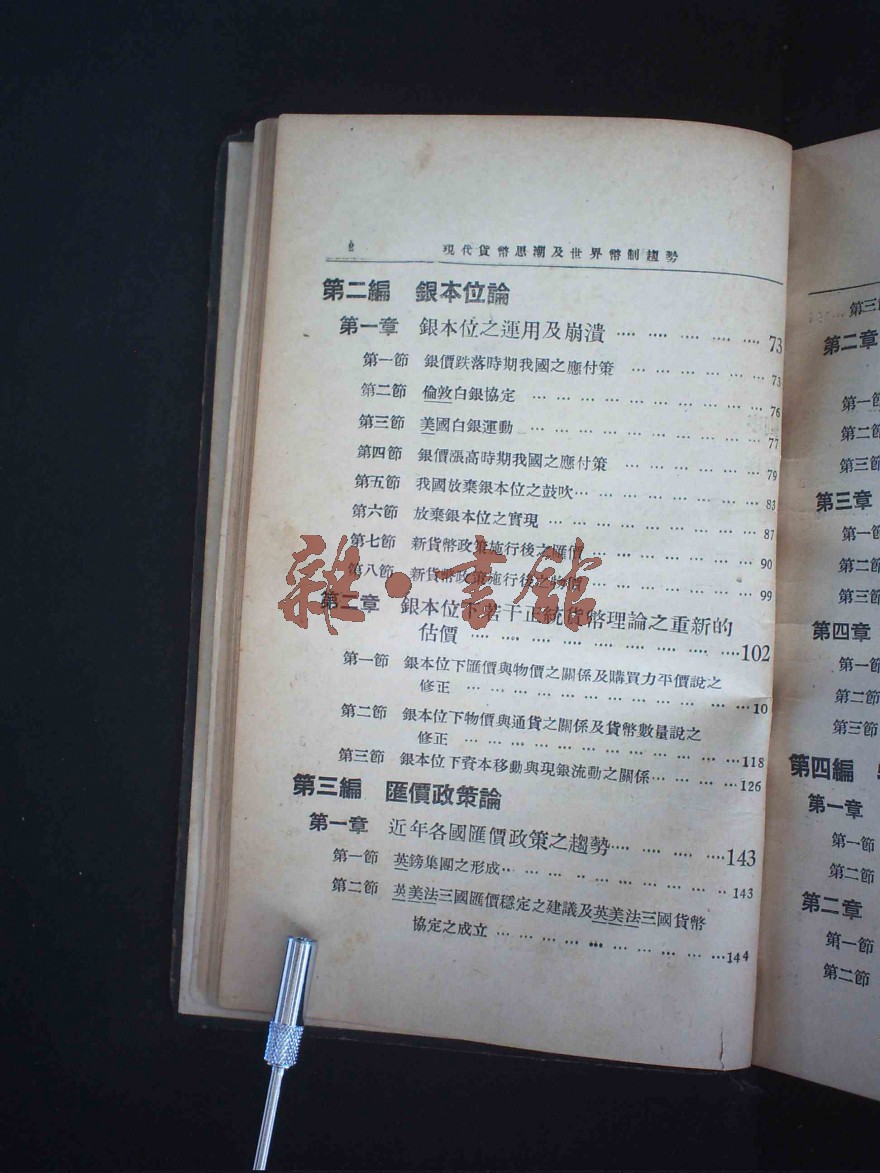 現代貨幣思潮及世界幣制趨勢
第二編 銀本位論
第一章 銀本位之運用及崩潰 … … … … … 73
第一節 銀價跌落時期我國之應付策 … … … … … … 73
第二節 倫敦白銀協定 … … … … … … … … … 76
第三節 美國白銀運動 … … … … … … … … … 77
第四節 銀價漲高時期我國之應付策 … … … … … … 79
第五節 我國放棄銀本位之鼓吹… … … … … … … 83
第六節 放棄銀本位之實現 … … … … … … … … 87
第七節 新貨幣政策施行後之匯價 … … … … … … 90
第八節 新貨幣政策施行後之物價 … … … … … … 99
第二章 銀本位下若干正統貨幣理論之重新的
估價 … … … … … … … … … …102
第一節 銀本位下匯價與物價之關係及購買力平價說之
修正 … … … … … … … … … … … …10
第二節 銀本位下物價與通貨之關係及貨幣數量說之
修正 … … … … … … … … … … …118
第三節 銀本位下資本移動與現銀流動之關係… … … …126
第三編 匯價政策論
第一章 近年各國匯價政策之趨勢… … … … …143
第一節 英鎊集團之形成… … … … … … … … … 143
第二節 英美法三國匯價穩定之建議及英美法三國貨幣
協定之成立 … … … … … … … … … …144
第三節
第二章
第一節
第二節
第三節
第三章
第一節
第二節
第三節
第四章
第一節
第二節
第三節
第四編
第一章
第一節
第二節
第二章
第一節
第二節
雜·書館